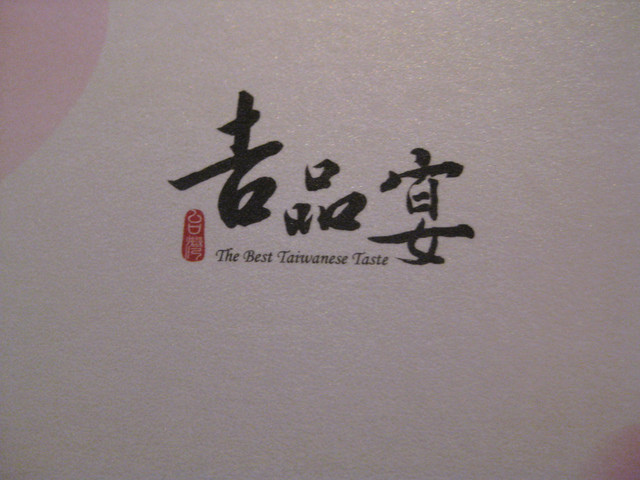 吉品宴
台灣
The Best Taiwanese Taste